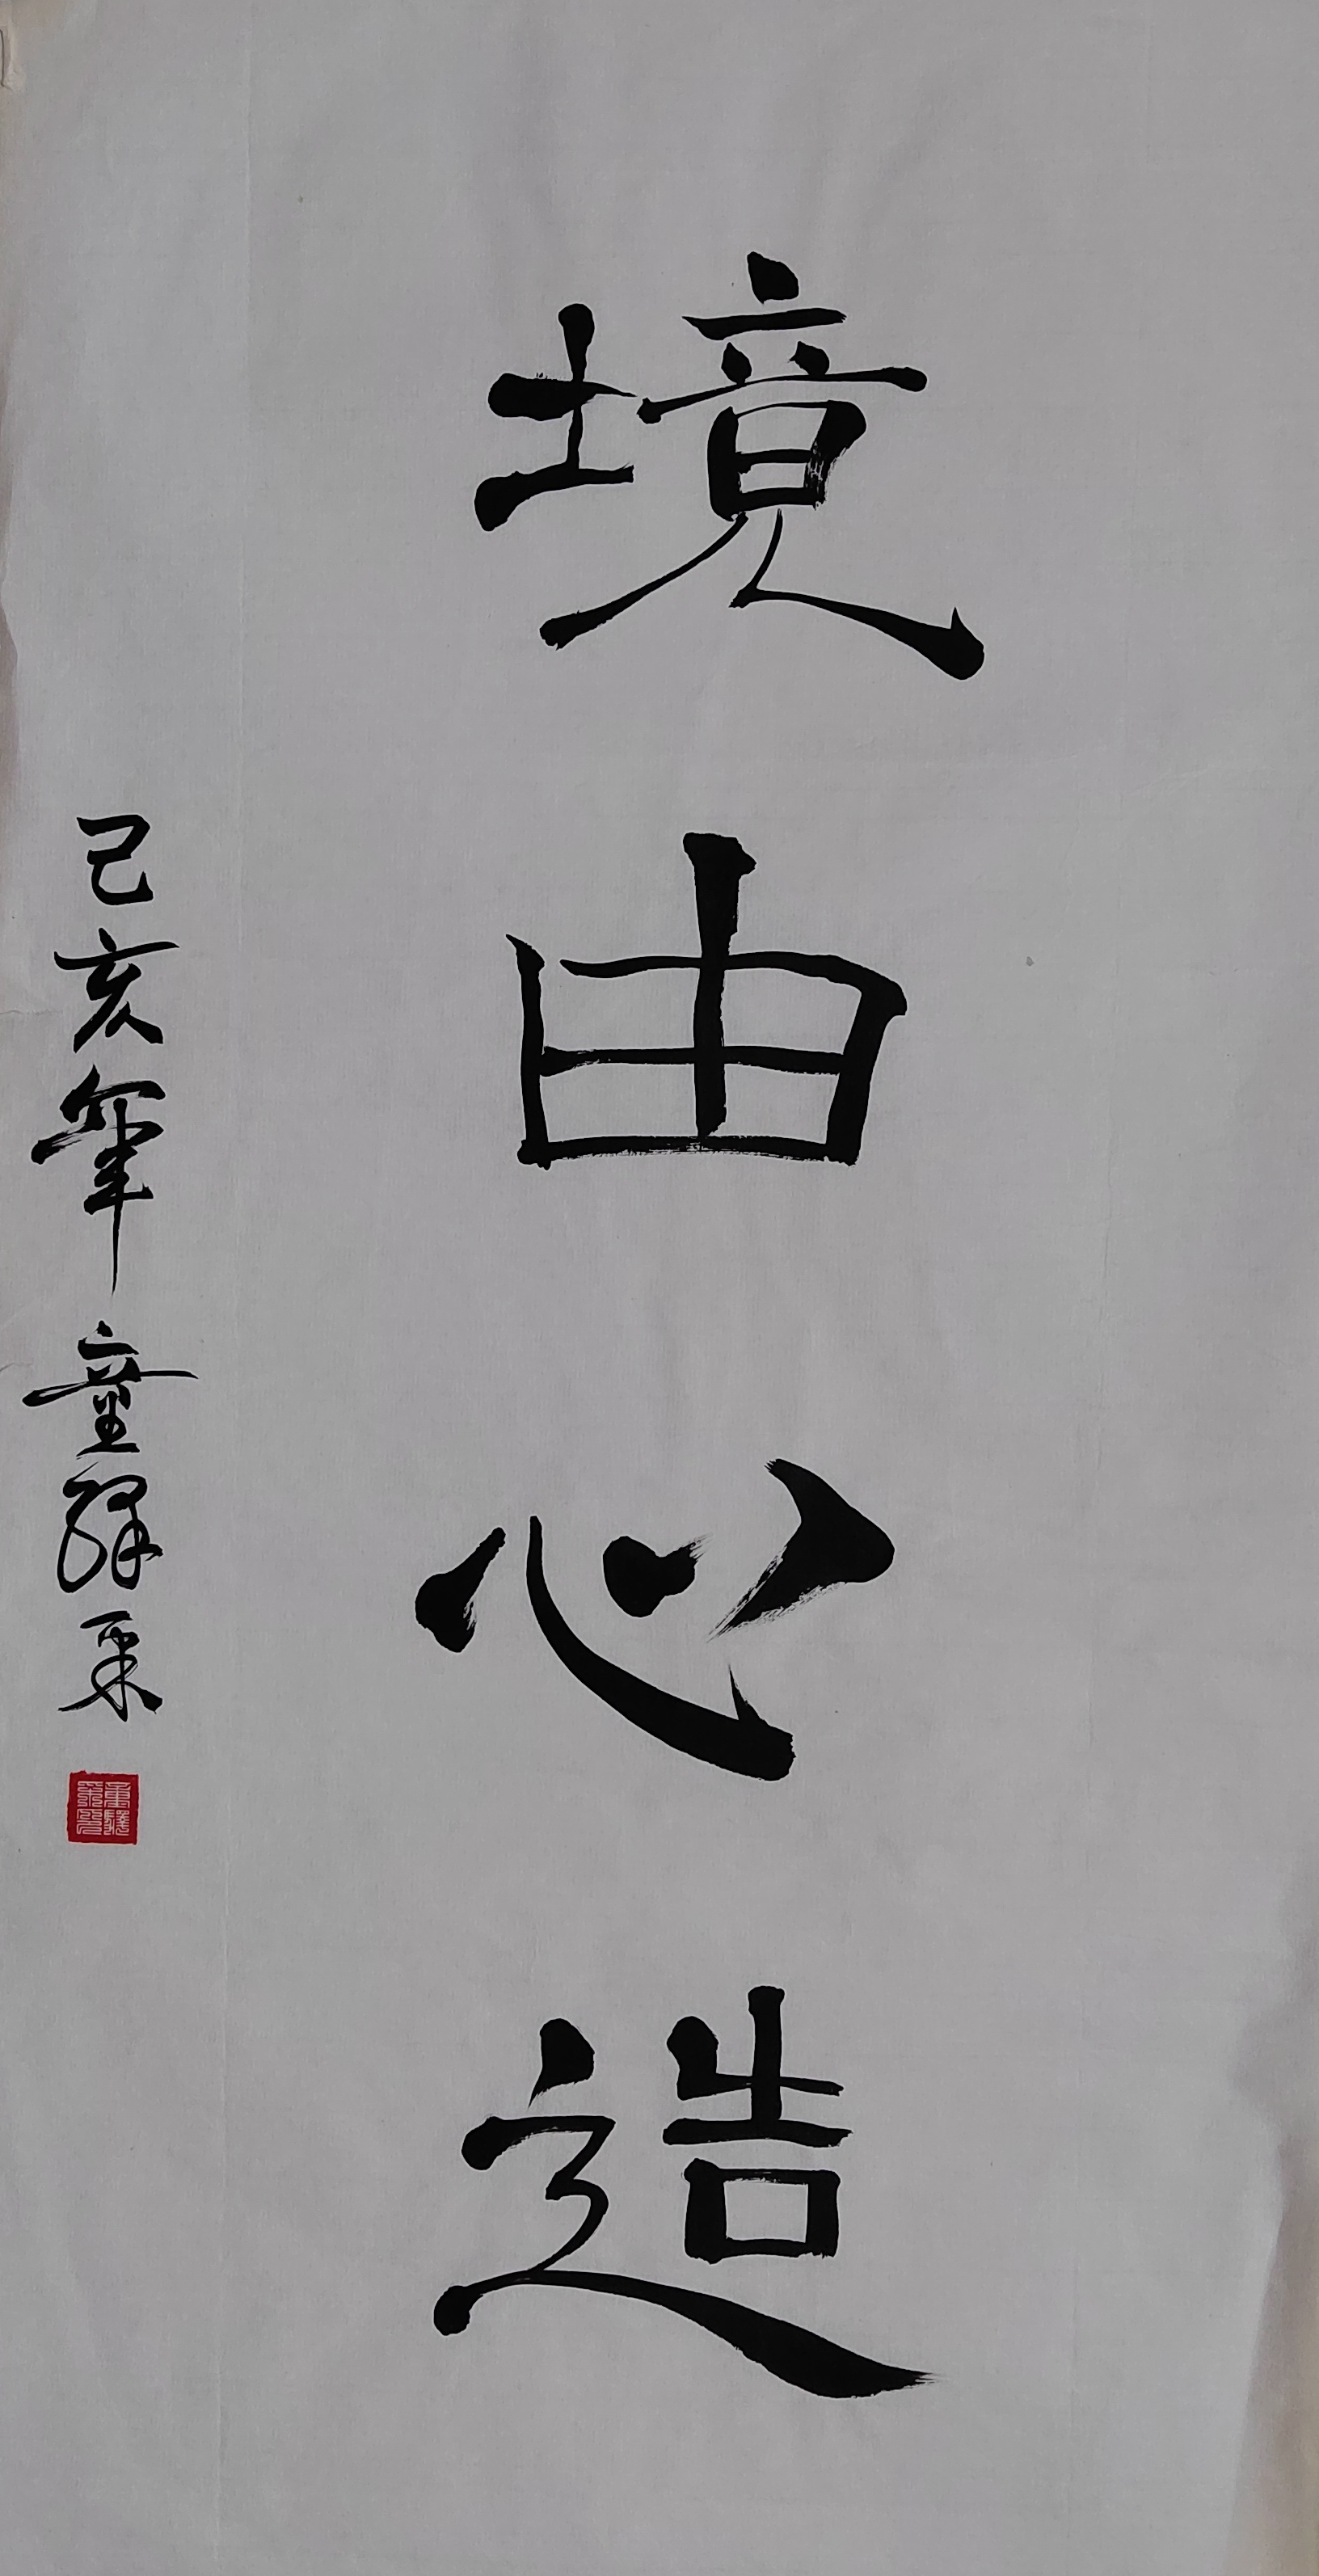 境由心造
己亥年 童驿采